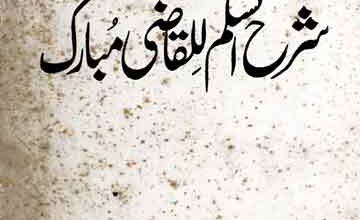 شرح السلم للقاضی مُبارک